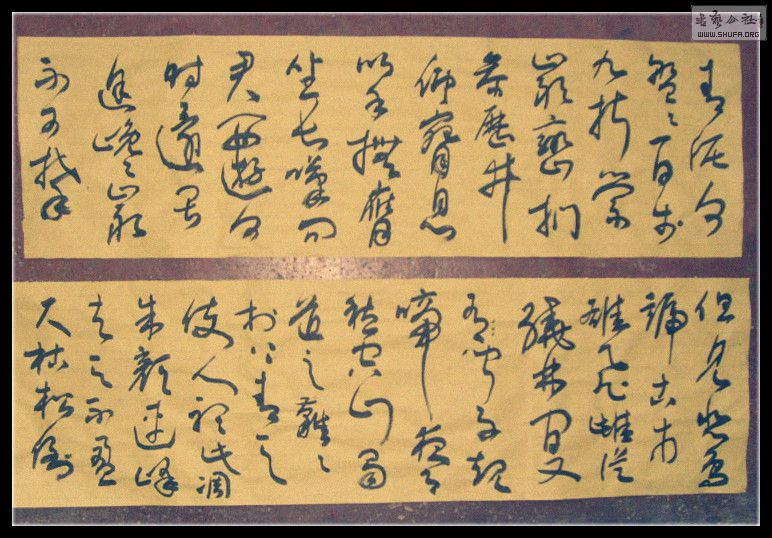 書藝公社
WWW.SHUFA.ORG
青泥何
盤〻百步
九折縈
巖巒捫
參歷井
仰脅息
以手撫膺
坐長嘆問
君西遊何
時還畏
途巉巖
不可攀
但見悲鳥
號古木
雄飛雌從
繞林間又
聞子規
啼夜月
愁空山蜀
道之難〻
於上青天
使人聽此凋
朱顏連峰
去天不盈
尺枯松倒